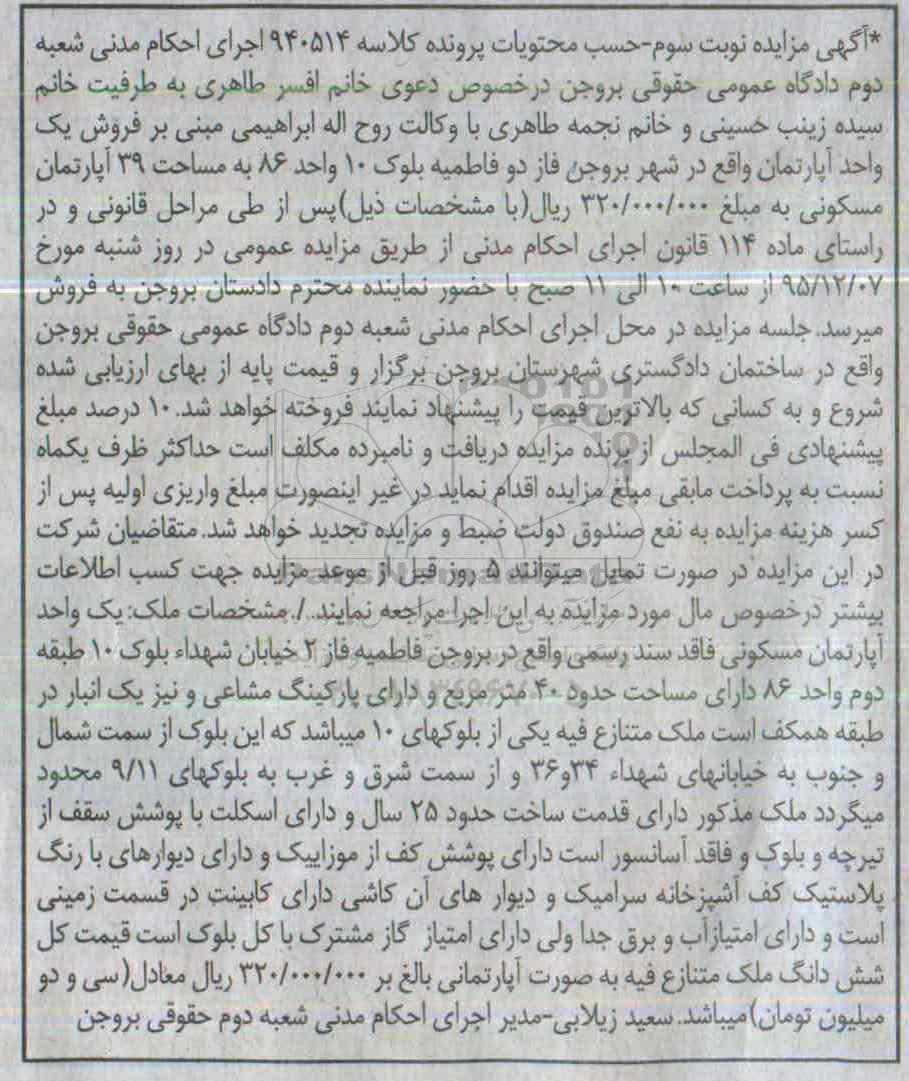 *آگهی مزایده نوبت سوم-حسب محتویات پرونده کلاسه ۹۴۰۵۱۴ اجرای احکام مدنی شعبه
دوم دادگاه عمومی حقوقی بروجن درخصوص دعوی خانم افسر طاهری به طرفیت خانم
سیده زینب حسینی و خانم نجمه طاهری با وکالت روح اله ابراهیمی مبنی بر فروش یک
واحد آپارتمان واقع در شهر بروجن فاز دو فاطمیه بلوک ۱۰ واحد ۸۶ به مساحت ۳۹ آپارتمان
مسکونی به مبلغ ۳۲۰/۰۰۰/۰۰۰ ریال(با مشخصات ذیل)پس از طی مراحل قانونی و در
راستای ماده ۱۱۴ قانون اجرای احکام مدنی از طریق مزایده عمومی در روز شنبه مورخ
۹۵/۱۲/۰۷ از ساعت ۱۰ الی ۱۱ صبح با حضور نماینده محترم دادستان بروجن به فروش
میرسد.جلسه مزایده در محل اجرای احکام مدنی شعبه دوم دادگاه عمومی حقوقی بروجن
واقع در ساختمان دادگستری شهرستان بروجن برگزار و قیمت پایه از بهای ارزیابی شده
شروع و به کسانی که بالاترین قیمت را پیشنهاد نمایند فروخته خواهد شد.۱۰ درصد مبلغ
پیشنهادی فی المجلس از برنده مزایده دریافت و نامبرده مکلف است حداکثر ظرف یکماه
نسبت به پرداخت مابقی مبلغ مزایده اقدام نماید در غیر اینصورت مبلغ واریزی اولیه پس از
کسر هزینه مزایده به نفع صندوق دولت ضبط و مزایده تجدید خواهد شد.متقاضیان شرکت
در این مزایده در صورت تمایل میتوانند ۵ روز قبل از موعد مزایده جهت کسب اطلاعات
بیشتر درخصوص مال مورد مزایده به این اجرا مراجعه نمایند./.مشخصات ملک:یک واحد
آپارتمان مسکونی فاقد سند رسمی واقع در بروجن فاطمیه فاز ۲ خیابان شهداء بلوک ۱۰ طبقه
دوم واحد ۸۶ دارای مساحت حدود ۴۰ متر مربع و دارای پارکینگ مشاعی و نیز یک انبار در
طبقه همکف است ملک متنازع فیه یکی از بلوکهای ۱۰ میباشد که این بلوک از سمت شمال
و جنوب به خیابانهای شهداء ۳۴و۳۶ و از سمت شرق و غرب به بلوکهای ۹/۱۱ محدود
میگردد ملک مذکور دارای قدمت ساخت حدود ۲۵ سال و دارای اسکلت با پوشش سقف از
تیرچه و بلوک و فاقد آسانسور است دارای پوشش کف از موزاییک و دارای دیوارهای با رنگ
پلاستیک کف آشپزخانه سرامیک و دیوار های آن کاشی دارای کابینت در قسمت زمینی
است و دارای امتیازآب و برق جدا ولی دارای امتیاز گاز مشترک با کل بلوک است قیمت کل
شش دانگ ملک متنازع فیه به صورت آپارتمانی بالغ بر ۳۲۰/۰۰۰/۰۰۰ ریال معادل(سی و دو
میلیون تومان)میباشد.سعید زیلابی-مدیر اجرای احکام مدنی شعبه دوم حقوقی بروجن